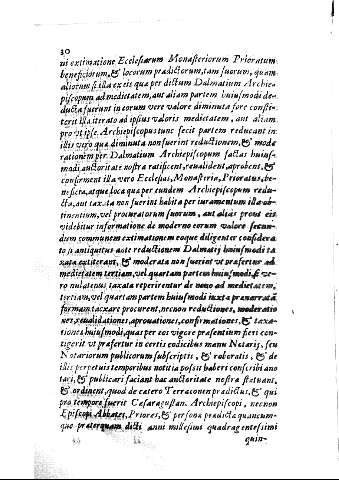 30
ui extimatione Ecclesiarum Monasteriorum Prioratum
beneficiorum, & locorum prædictorum, tam suorum, quam
aliorum si illa ex is qua per dictum Dalmatium Archie-
piscopum ad medietatem, aut aliam partem huiusmodi de-
ducta fuerunt in eorum vere valore diminuta fore consti-
terit illa iterato ad ipsius valoris medietatem, aut aliam
pro vt ipse Archiepiscopus tunc fecit partem reducant in
illis vero qua diminuta non fuerint reductionem, & mode
rationem per Dalmatium Archiepiscopum factas huius-
modi auctoritate nostra ratificent, reualident, aprobent, &
confirment illa vero Ecclesias, Monasteria, Prioratus, be-
neficia, atque loca qua per eundem Archiepiscopum redu-
cta, aut taxata non fuerint habita per iuramentum illa ob-
tinentium, vel procuratorum suorum, aut alias prout eis
videbitur informatione de moderno eorum valore secun-
dum communem extimationem eoque diligenter considera
to si antiquitus ante reductionem Dalmatij huiusmodi ta
xata extiterant, & moderata non fuerint vt præfertur ad
medietatem tertiam, vel quartam partem huiusmodi si ve-
ro nulatenus taxata reperirentur de nouo ad medietatem,
tertiam, vel quartam partem huiusmodi iuxta prænarratã
formam taxare procurent, necnon reductiones, moderatio
nes, reualidationes, aprouationes, confirmationes, & taxa-
tiones huiusmodi, quas per eos vigore præsentium fieri con-
tigerit vt præfertur in certis codicibus manu Notarij, seu
Notariorum publicorum subscriptis, & roboratis, & de
illis perpetuis temporibus notitia possit haberi conscribi ano
tari, & publicari faciant hac auctoritate nostra statuant,
& ordinent, quod de catero Terraconen prædictus, & qui
pro tempore fuerit Cesaraugustan. Archiepiscopi, necnon
Episcopi Abbates, Priores, & persona prædicta quancum-
que præterquam dicti anni millesimi quadragentesimi
quin-